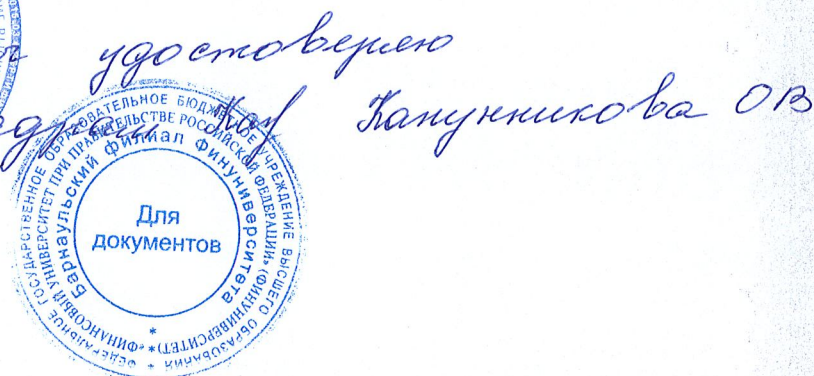 удостоверяю
Канунникова ОВ
ФЕДЕРАЛЬНОЕ ГОСУДАРСТВЕННОЕ ОБРАЗОВАТЕЛЬНОЕ БЮДЖЕТНОЕ УЧРЕЖДЕНИЕ ВЫСШЕГО ОБРАЗОВАНИЯ *
«ФИНАНСОВЫЙ УНИВЕРСИТЕТ ПРИ ПРАВИТЕЛЬСТВЕ РОССИЙСКОЙ ФЕДЕРАЦИИ» (ФИНУНИВЕРСИТЕТ) *
Барнаульский филиал Финуниверситета *
Для
документов